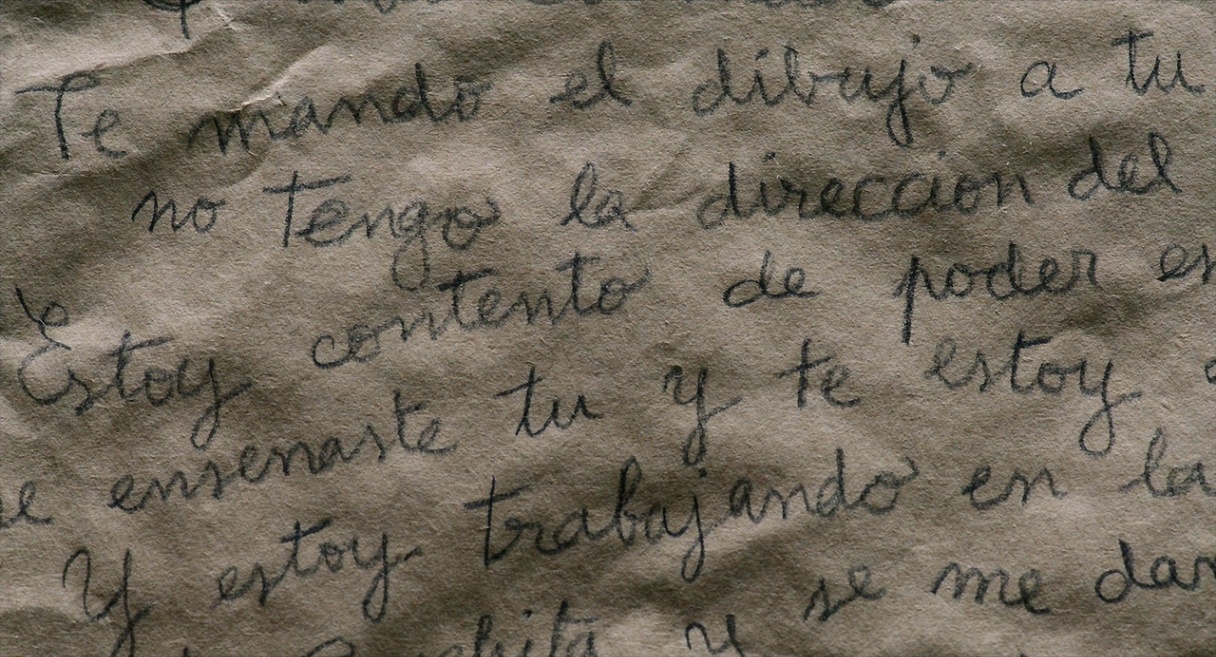 Te mando el dibujo a tu
no tengo la direccion del
Estoy contento de poder es
ensenaste tu y te estoy
Y estoy trabajando en la
y se me dan